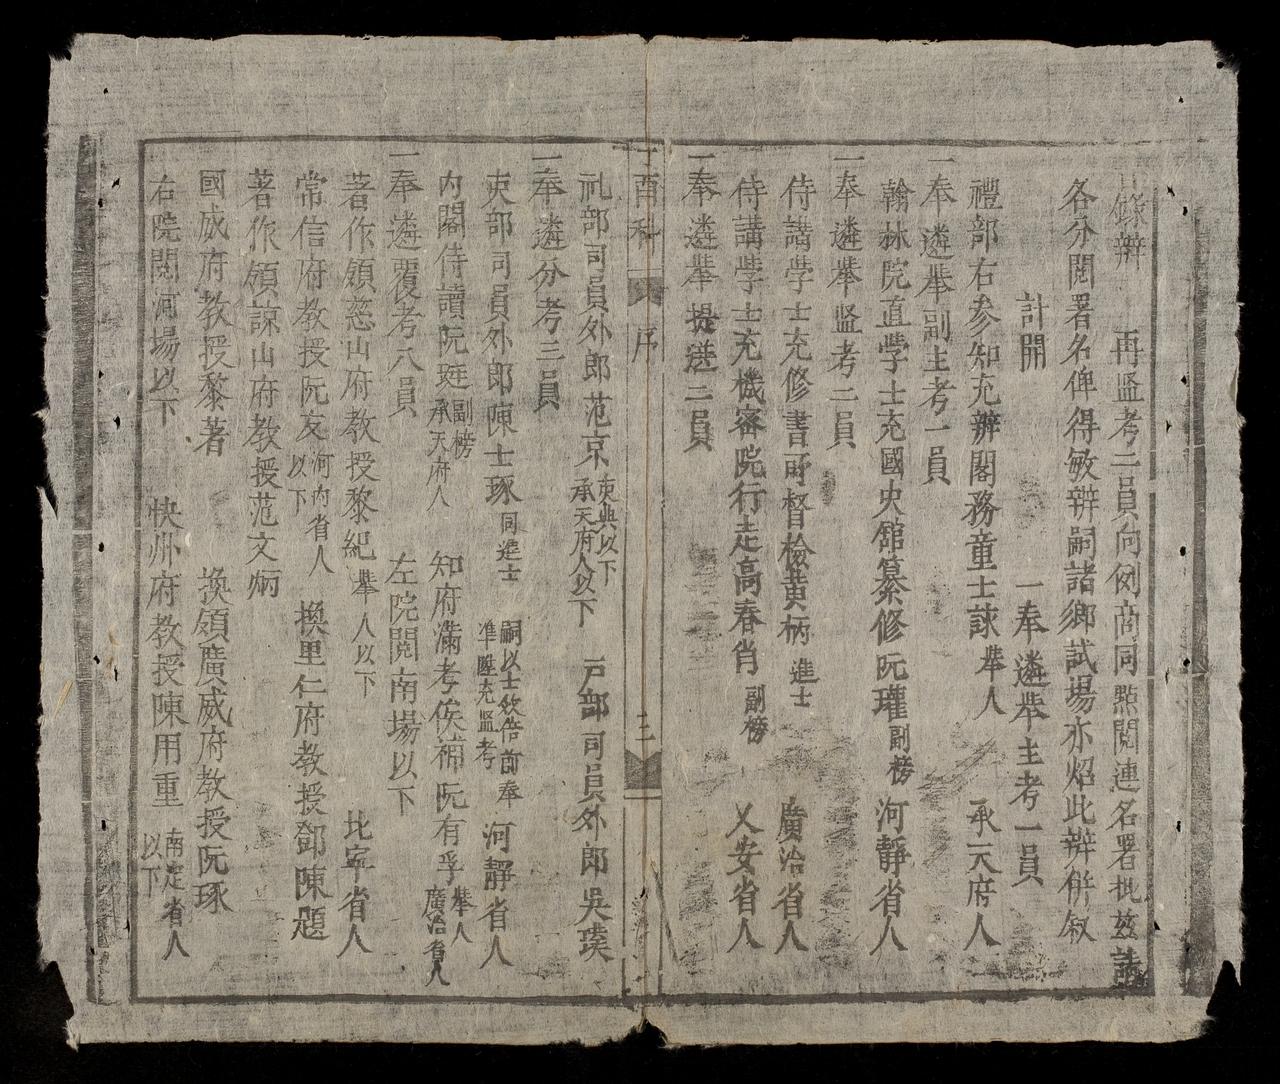 言錄辦 再監考二員向例商同點閱連名署批茲請
各分閱署名俾得敏辦嗣諸鄉試場亦炤此辦併叙
計開 一奉遴舉主考一員
禮部右參知充辦閣務童士誴舉人 承天府人
一奉遴舉副主考一員
翰林院直學士充國史館纂修阮瓘副榜 河靜省人
一奉遴舉監考二員
侍講學士充修書所督檢黃柄進士 廣治省人
侍講學士充機密院行走高春肖副榜 乂安省人
一奉遴舉提選二員
丁酉科 序 三
礼部司員外郎范京吏典以下承天府人以下 一戶部司員外郎吳璞
一奉遴分考三員
吏部司員外郎陳士琢同進士 嗣以士敘告前奉準陞充監考 河靜省人
內閣侍讀阮珽副榜承天府人 知府滿考候補阮有孚舉人廣治省人
一奉遴覆考八員 左院閱南場以下
著作領慈山府教授黎紀舉人以下 北寧省人
常信府教授阮友河內省人以下 換里仁府教授鄧陳題
著作領諒山府教授范文炳
國威府教授黎著 換領廣威府教授阮琢
右院閱河場以下 快州府教授陳用重南定省人以下